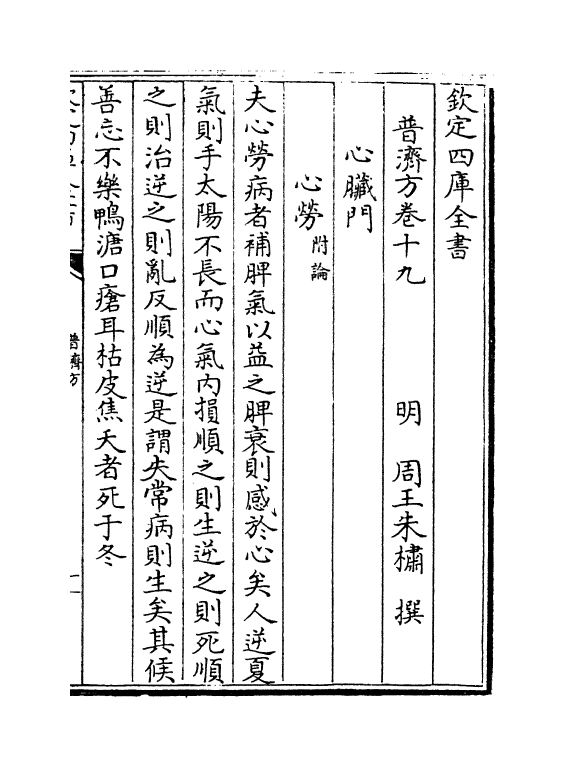 欽定四庫全書
普濟方卷十九　　　明　周王朱橚　撰
心臟門
心勞附論
夫心勞病者補脾氣以益之脾衰則感於心矣人逆夏
氣則手太陽不長而心氣內損順之則生逆之則死順
之則治逆之則亂反順為逆是謂失常病則生矣其候
善忘不樂鴨溏口瘡耳枯皮焦夭者死于冬
普濟方